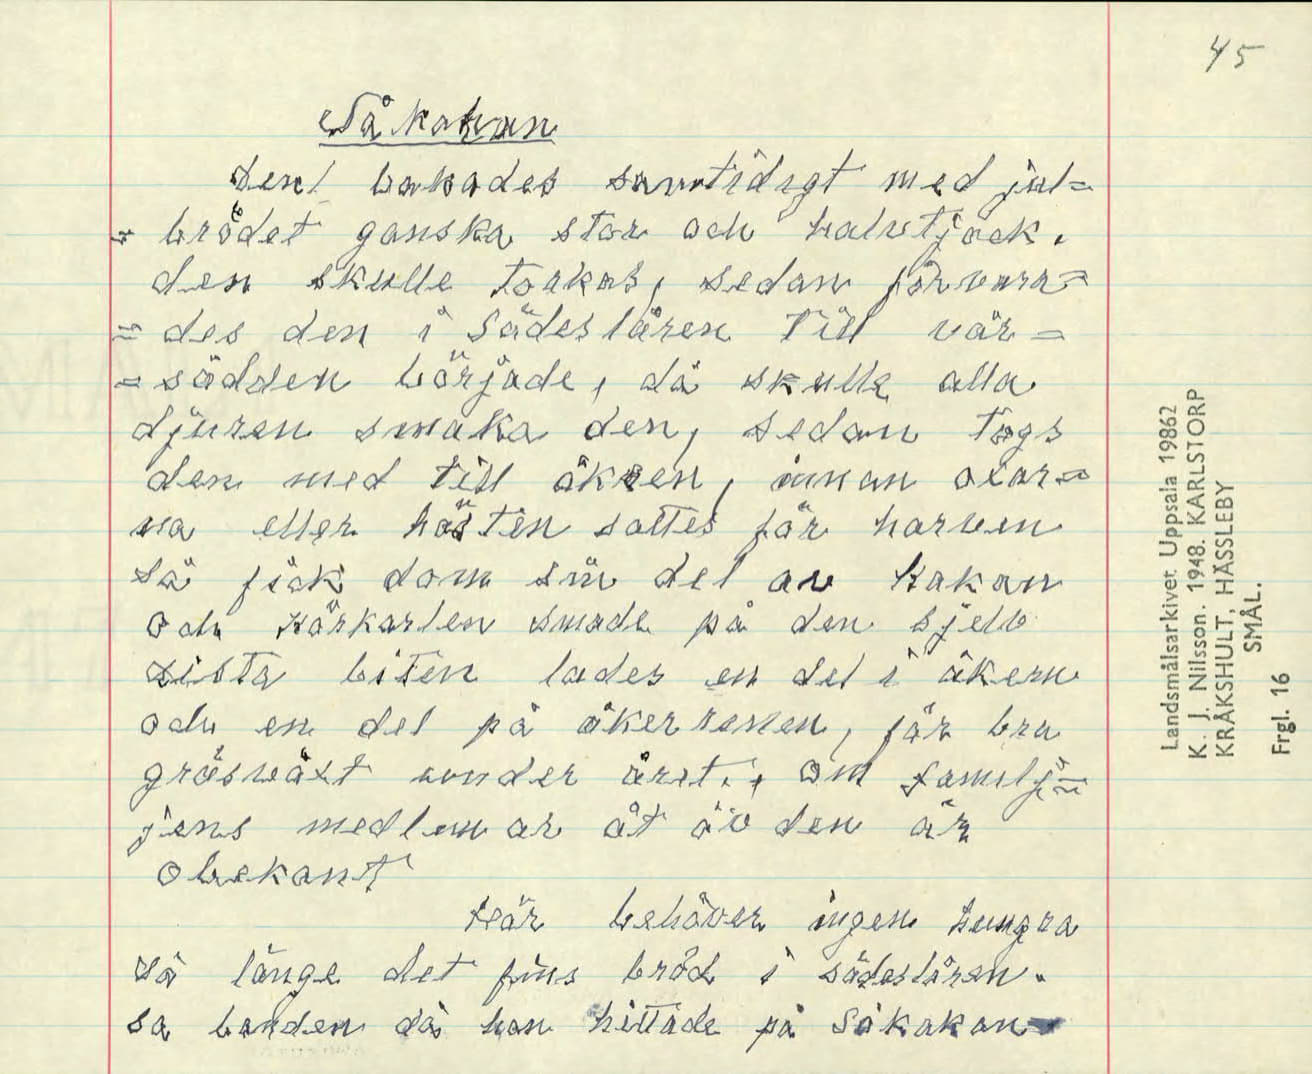 45
Såkakan
Den bakades samtidigt med jul=
=brödet ganska stor och halvtjock,
den skulle torkas, sedan förvara=
=des den i Sädeslåren till vår=
=sådden började, då skulle alla
djuren smaka den, sedan togs
den med till åkren, innan oxar=
na eller hästen sattes för harven
så fick dom sin del av kakan
och körkarlen smade på den sjelv
sista biten lades en del i åkern
och en del på åkerrenen, för bra
gräsväxt under året., om familj=
jens medlemar åt av den är
obekant
Här behöver ingen hungra
så länge det fins bröd i sädeslåren.
sa bonden då han hittade på Såkakan
Landsmålsarkivet Uppsala 19862
K. J. Nilsson. 1948. KARLSTORP
KRÅKSHULT, HÄSSLEBY
SMÅL.
Frgl. 16